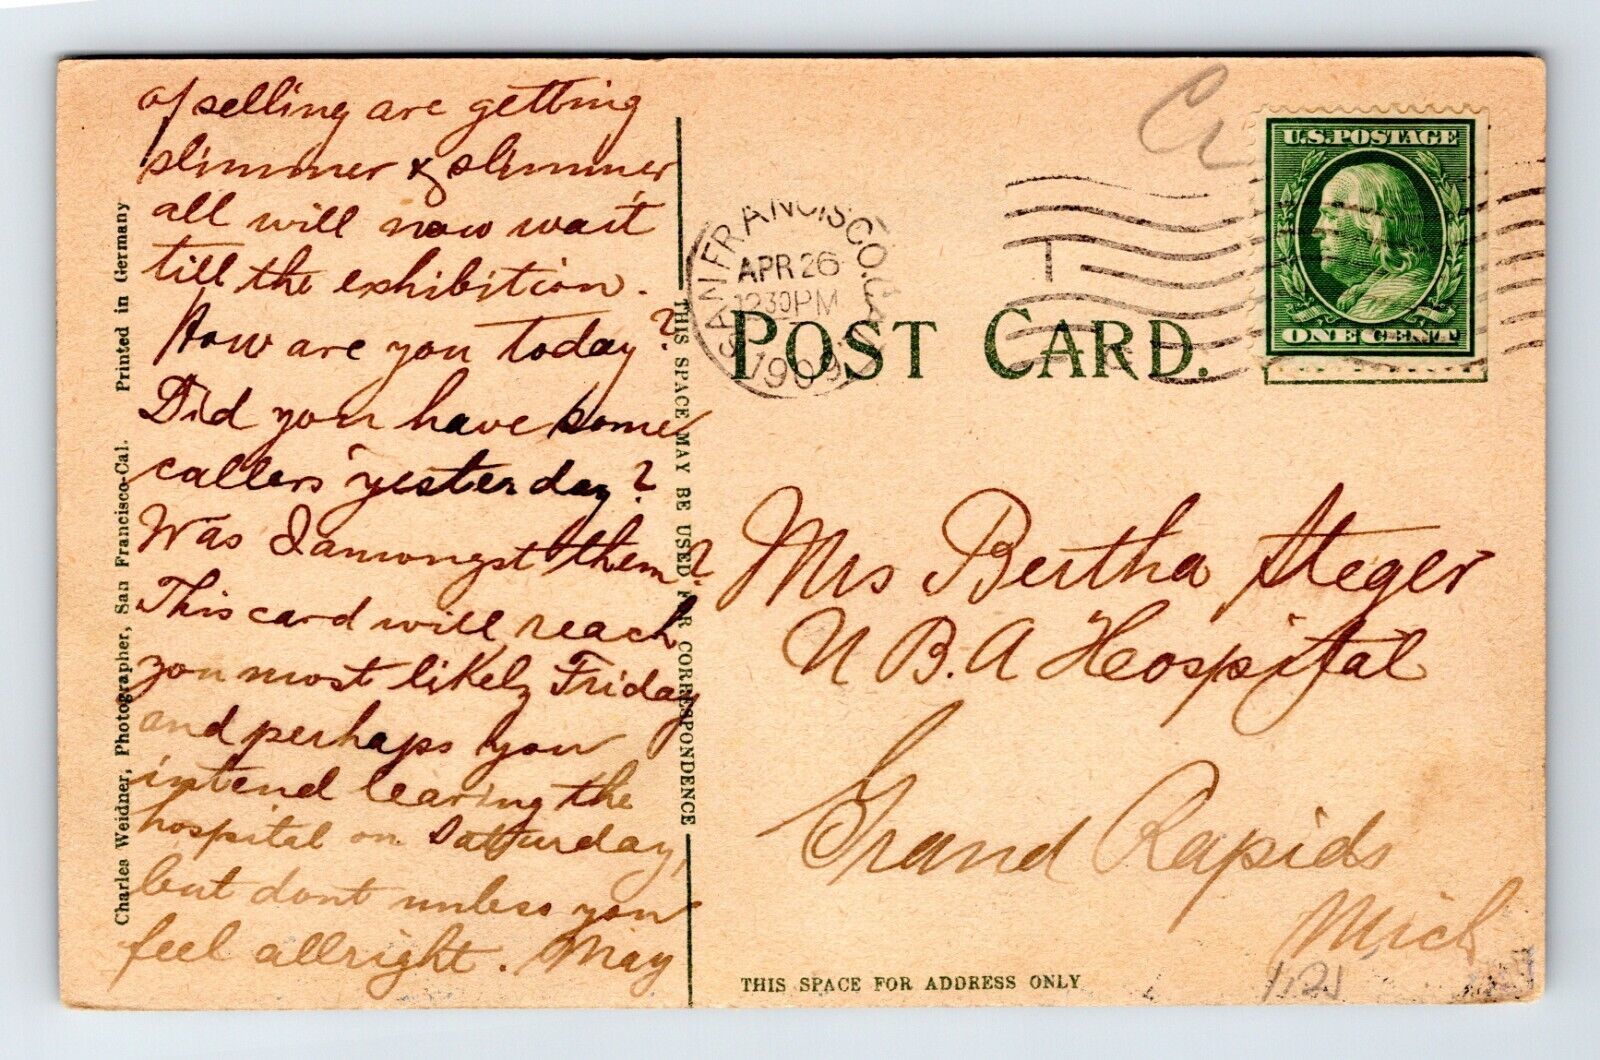 of selling are getting
slimmer & slimmer
all will now wait
till the exhibition.
How are you today?
Did you have some
callers yesterday?
Was I amongst them?
This card will reach
you most likely Friday
and perhaps you
intend leaving the
hospital on Satturday,
but dont unless you
feel allright. May
Charles Weidner, Photographer, San Francisco-Cal. Printed in Germany
THIS SPACE MAY BE USED FOR CORRESPONDENCE
SAN FRANCISCO, CAL
APR 26
12 30 PM
1909
POST CARD.
U.S. POSTAGE
ONE CENT
Mrs Bertha Steger
U B. A Hospital
Grand Rapids
Mich
THIS SPACE FOR ADDRESS ONLY